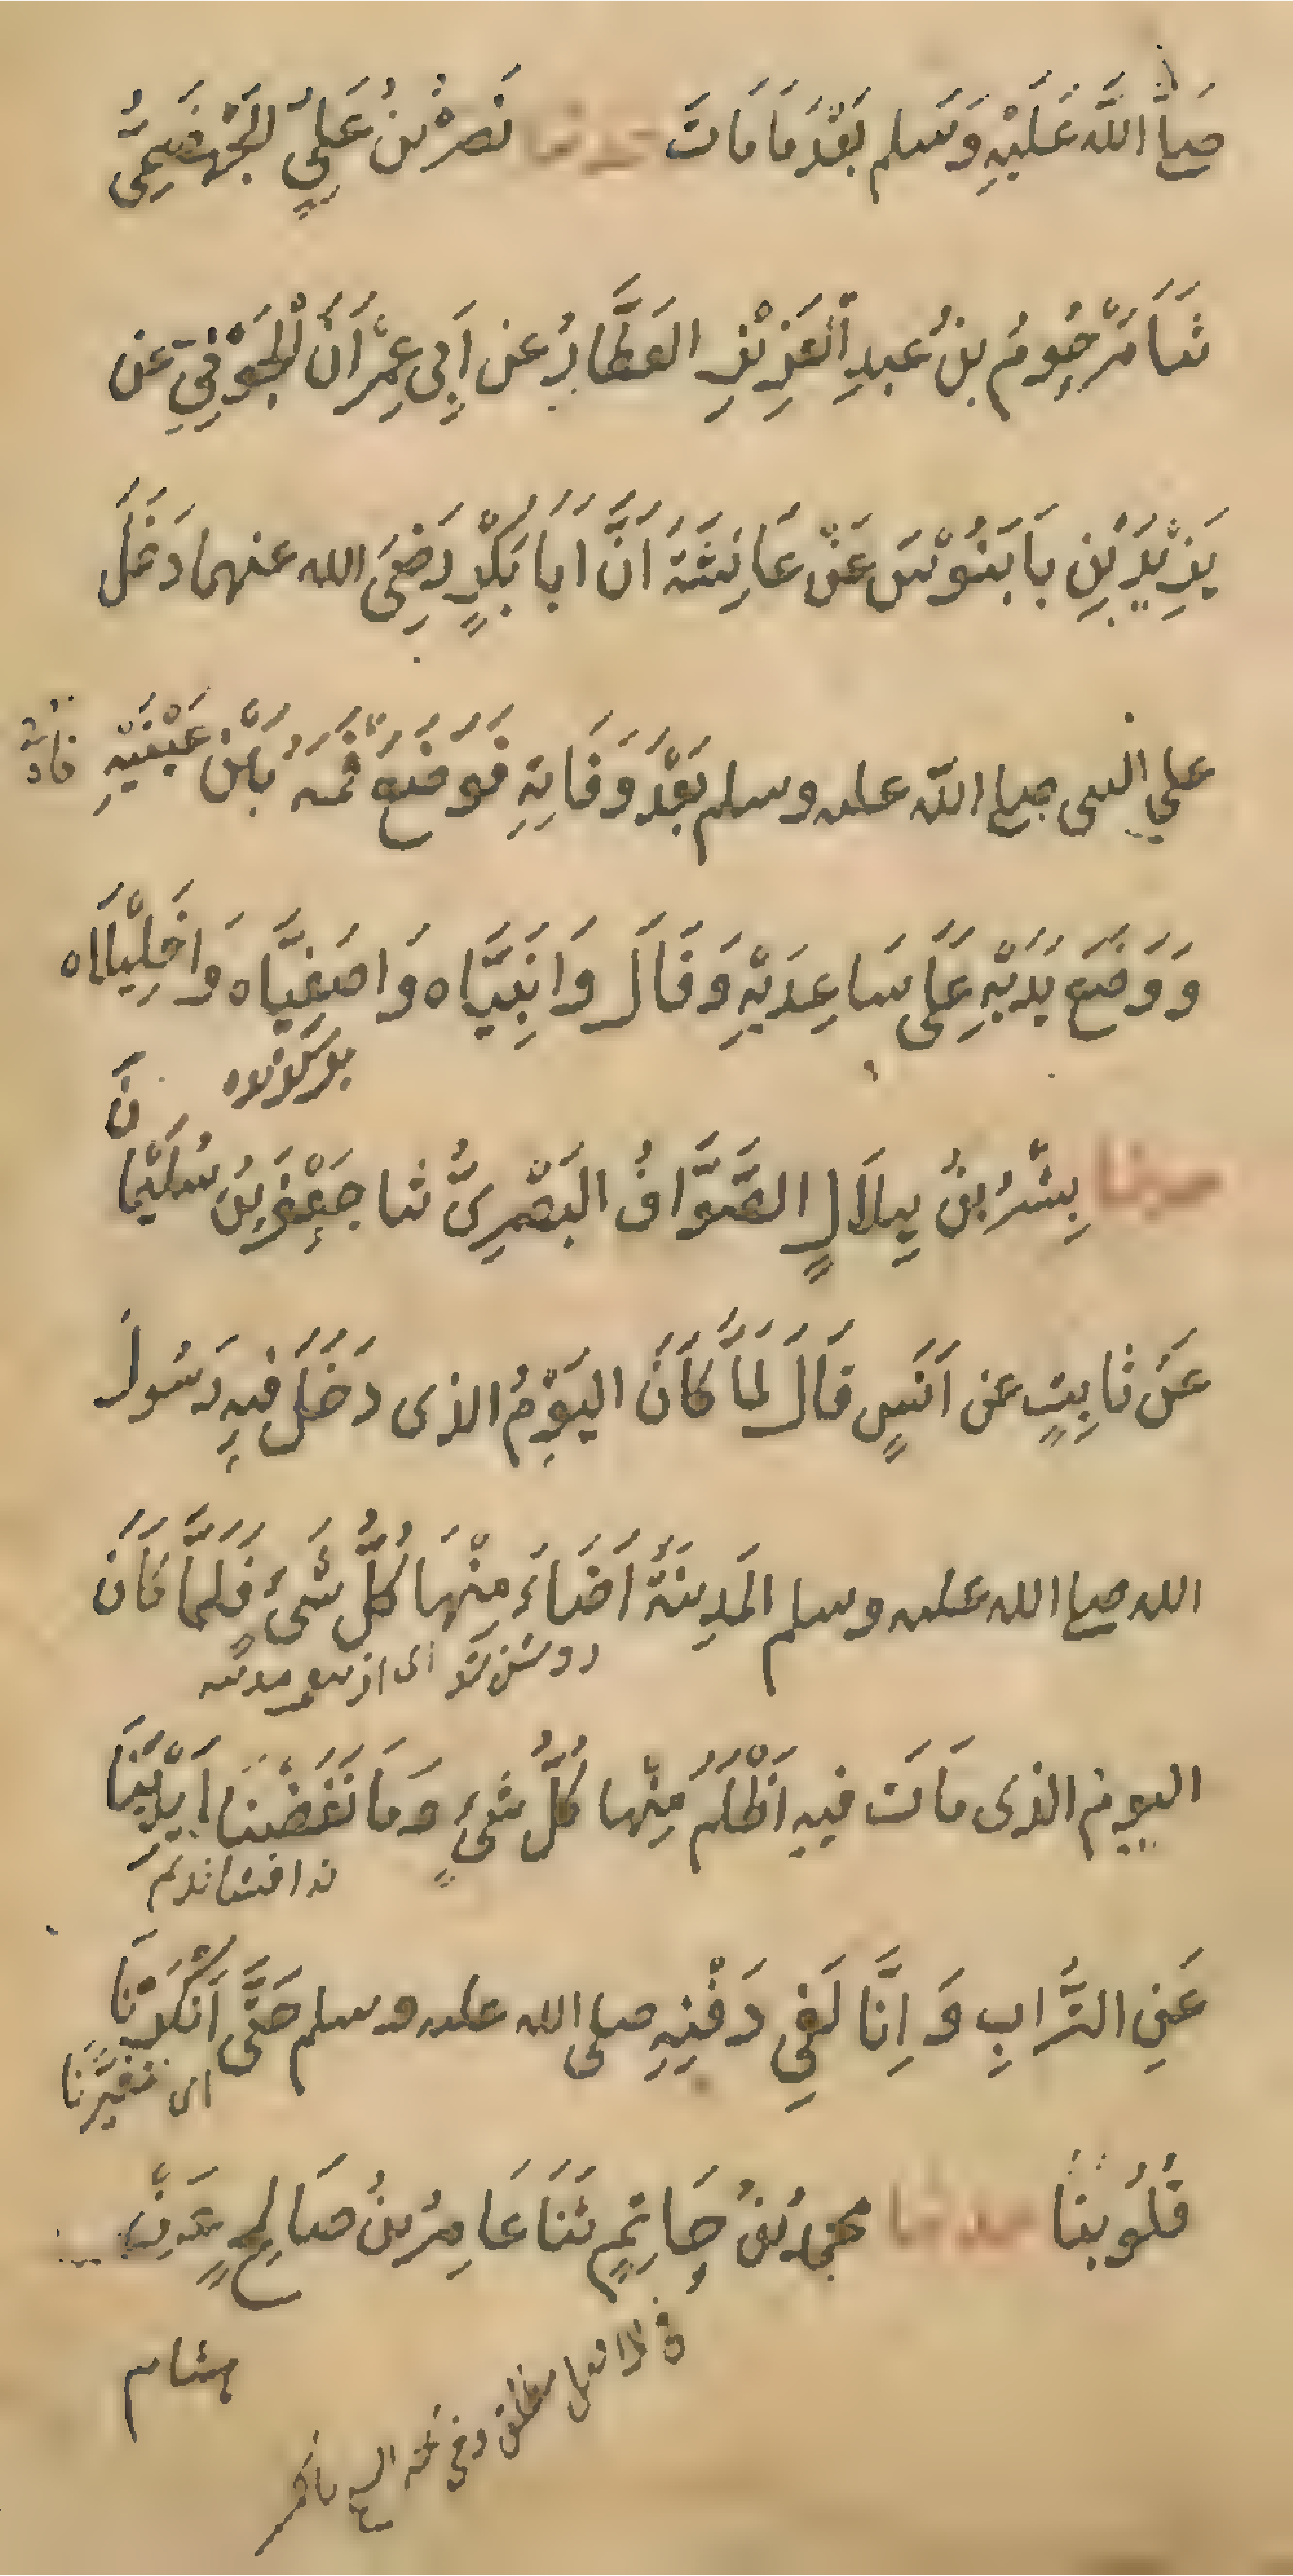 صلى الله عَلَيْهِ وَسَلم بَعْدَ مَا مَاتَ حدثنا نَصْرُ بْنُ عَلِيٍّ الجَهْضَمِيُّ
ثَنَا مَرْحُومُ بنُ عَبدِ الْعَزِيْزِ العَطَّارُ عن اَبِى عِمْرَانَ الْجَوْنِيِّ عن
يَزِيْدَ بْنِ بَابَنُوْسَ عَنْ عَائِشَةَ اَنَّ اَبَا بَكْرٍ رَضِىَ الله عنهما دَخَلَ
على النبى صلى الله عليه وسلم بَعْدَ وَفَاتِهِ فَوَضَعَ فَمَهُ بَيْنَ عَيْنَيْهِ
وَوَضَعَ يَدَيْهِ عَلَى سَاعِدَيْهِ وَقَالَ وَانَبِيَّاه وَاصَفِيَّاه وَاخَلِيْلَاه
حدثنا بِشْرُ بنُ هِلَالٍ الصَّوَّافُ البَصْرِىُّ ثنا جَعْفَرُ بْنُ سُلَيْمَانَ
عَنْ ثَابِتٍ عن اَنَسٍ قَالَ لَمَّا كَانَ اليَوْمُ الذى دَخَلَ فِيهِ رَسُولُ
الله صلى الله عليه وسلم المَدِينَةَ اَضَاءَ مِنْهَا كُلُّ شَىْءٍ فَلَمَّا كَانَ
روشن شد اى از مدينه
اليوم الذى مَاتَ فيه اَظْلَمَ مِنْها كُلُّ شىءٍ وَمَا نَفَضْنَا اَيْدِيَنَا
نه افشانديم
عَنِ التُّرَابِ وَاِنَّا لَفِى دَفْنِهِ صلى الله عليه وسلم حَتَّى اَنْكَرْنَا
اى تغيَّرنَا
قُلُوبنَا حدثنا محمدُ بْنُ حَاتِمٍ ثَنَا عَامِرُ بنُ صَالِحٍ عَنْ
هشام